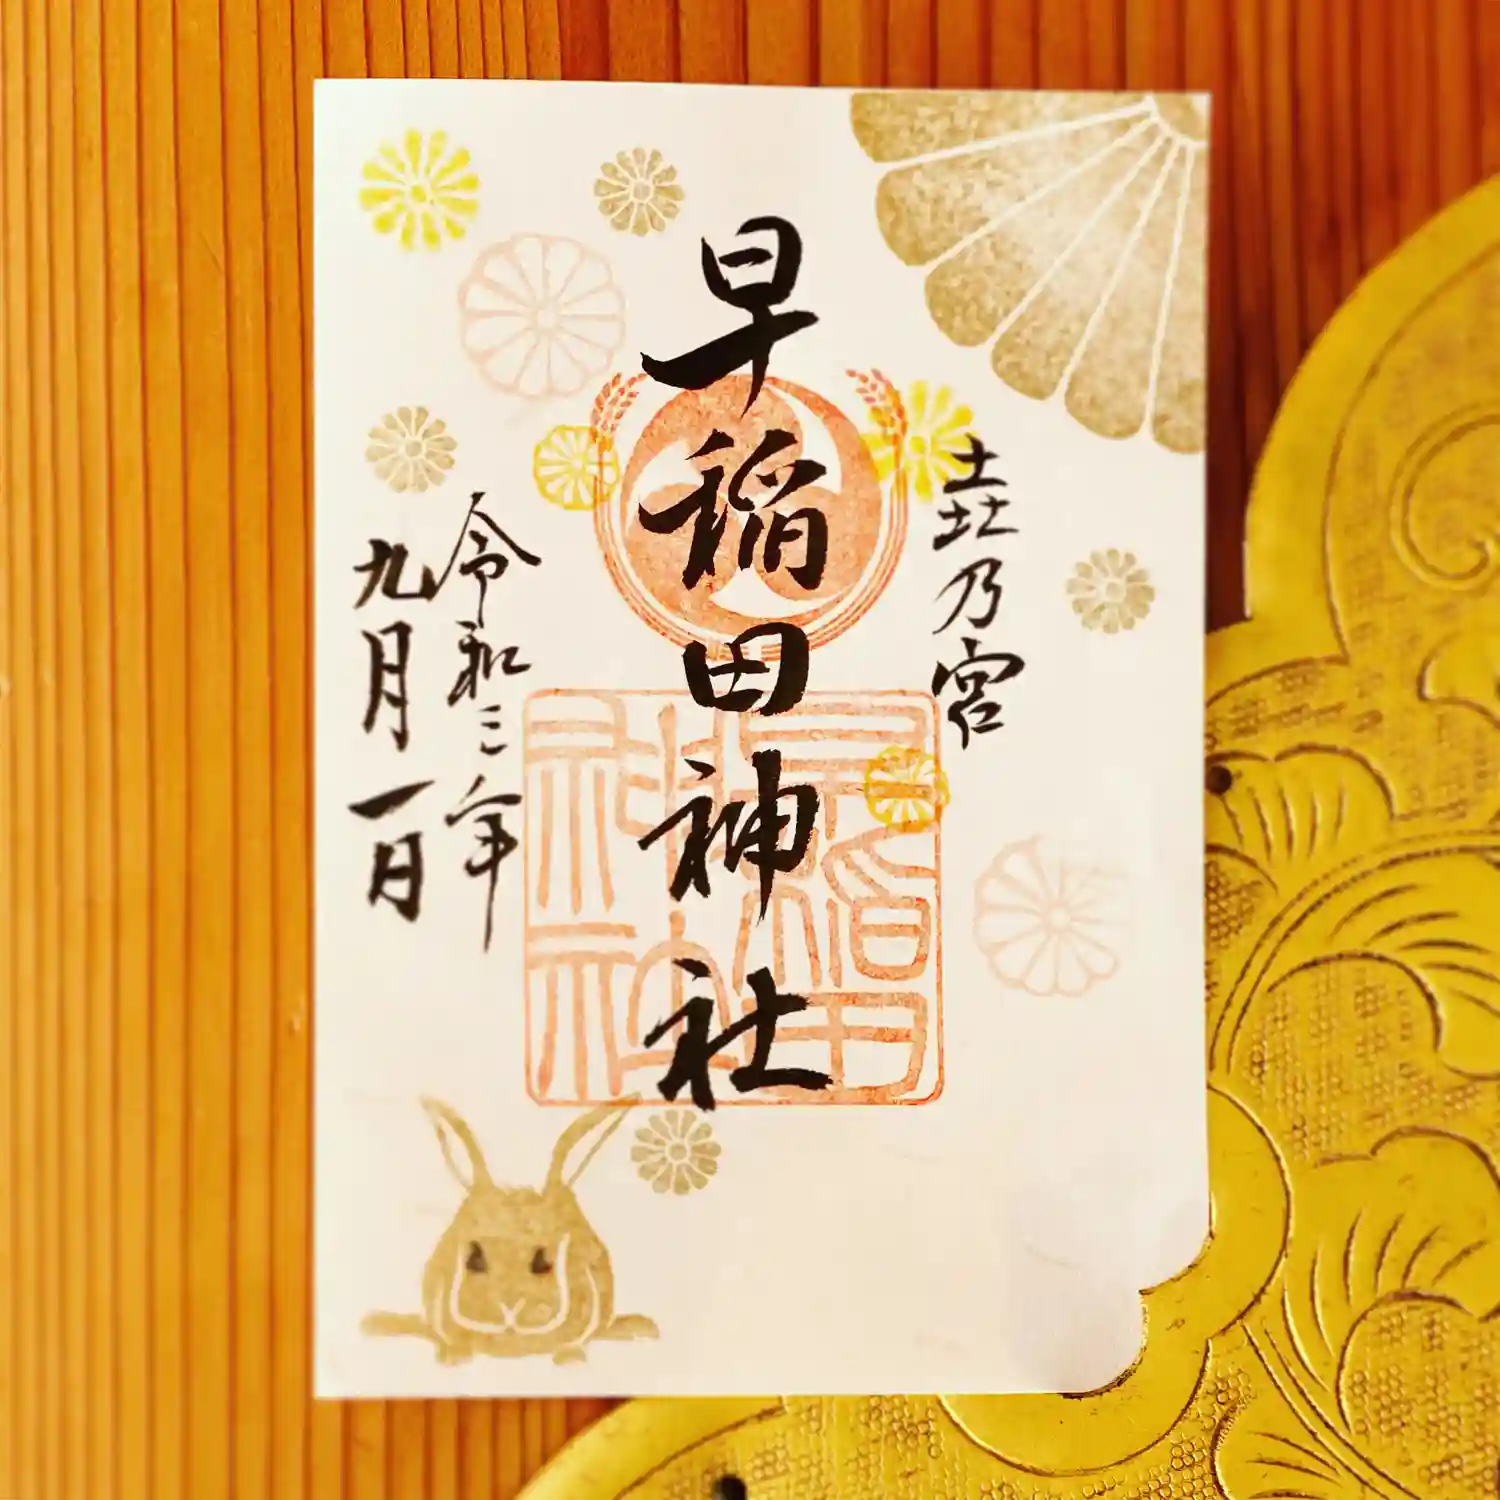 垚乃宮
早稲田神社
早稲田神社
令和三年
九月一日